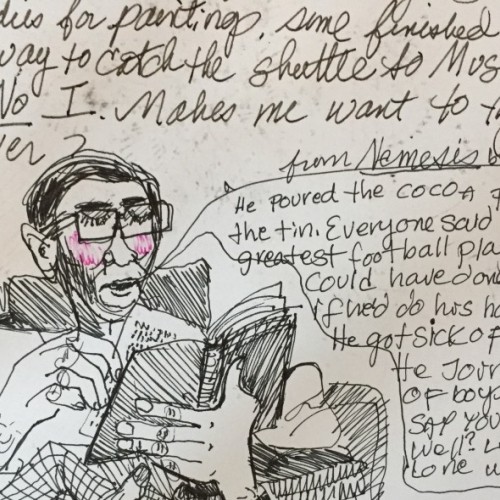 dies for paintings, some finished
way to catch the shuttle to Mus
No I. Makes me want to t
ver?
from Nemesis
He poured the cocoa
the tin. Everyone said
greatest football pla
Could have don
if he'd do his ho
He got sick of
He Jour
of boy
SAP YOU
well?